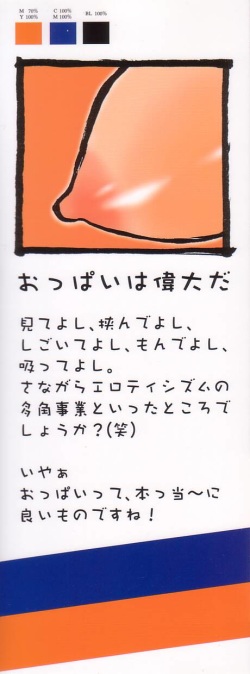 M 70%
Y 100%
C 100%
M 100%
BL 100%
おっぱいは偉大だ
見てよし、挟んでよし、
しごいてよし、もんでよし、
吸ってよし。
さながらエロティシズムの
多角事業といったところで
しょうか?(笑)
いやぁ
おっぱいって、本っ当〜に
良いものですね!